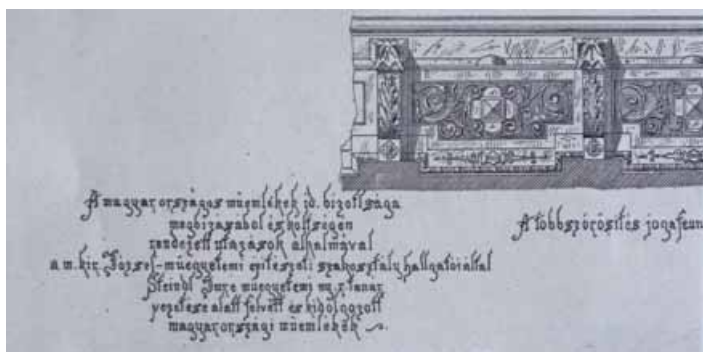 A magyar országos műemlékek id. bizottsága
megbizásából és költségén
rendezett utazások alkalmával
a m. kir. József-műegyetemi épitészeti szakosztály hallgatói által
Steindl Imre műegyetemi ny. r. tanár
vezetése alatt felvett és kidolgozott
magyarországi műemlékek
A többszörösítés joga fenn